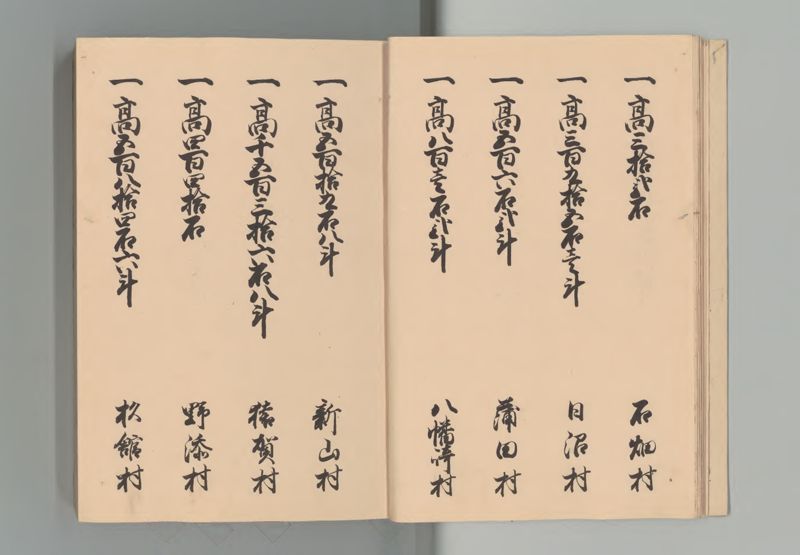 一 高三拾弐石 石畑村
一 高三百九拾五石壱斗 日沼村
一 高五百六石弐斗 蒲田村
一 高八百壱石弐斗 八幡崎村
一 高五百拾九石八斗 新山村
一 高千五百三拾六石八斗 猿賀村
一 高四百四拾石 野添村
一 高五百八拾四石六斗 杦館村